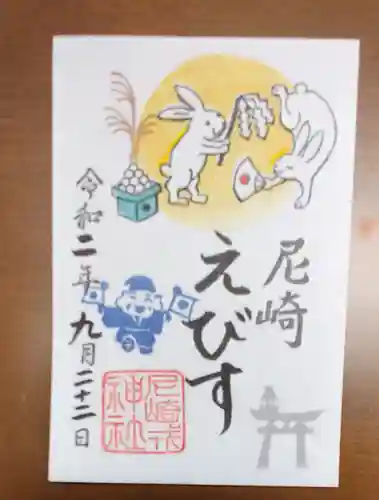 尼崎
えびす
令和二年 九月二十二日
尼崎戎
神社